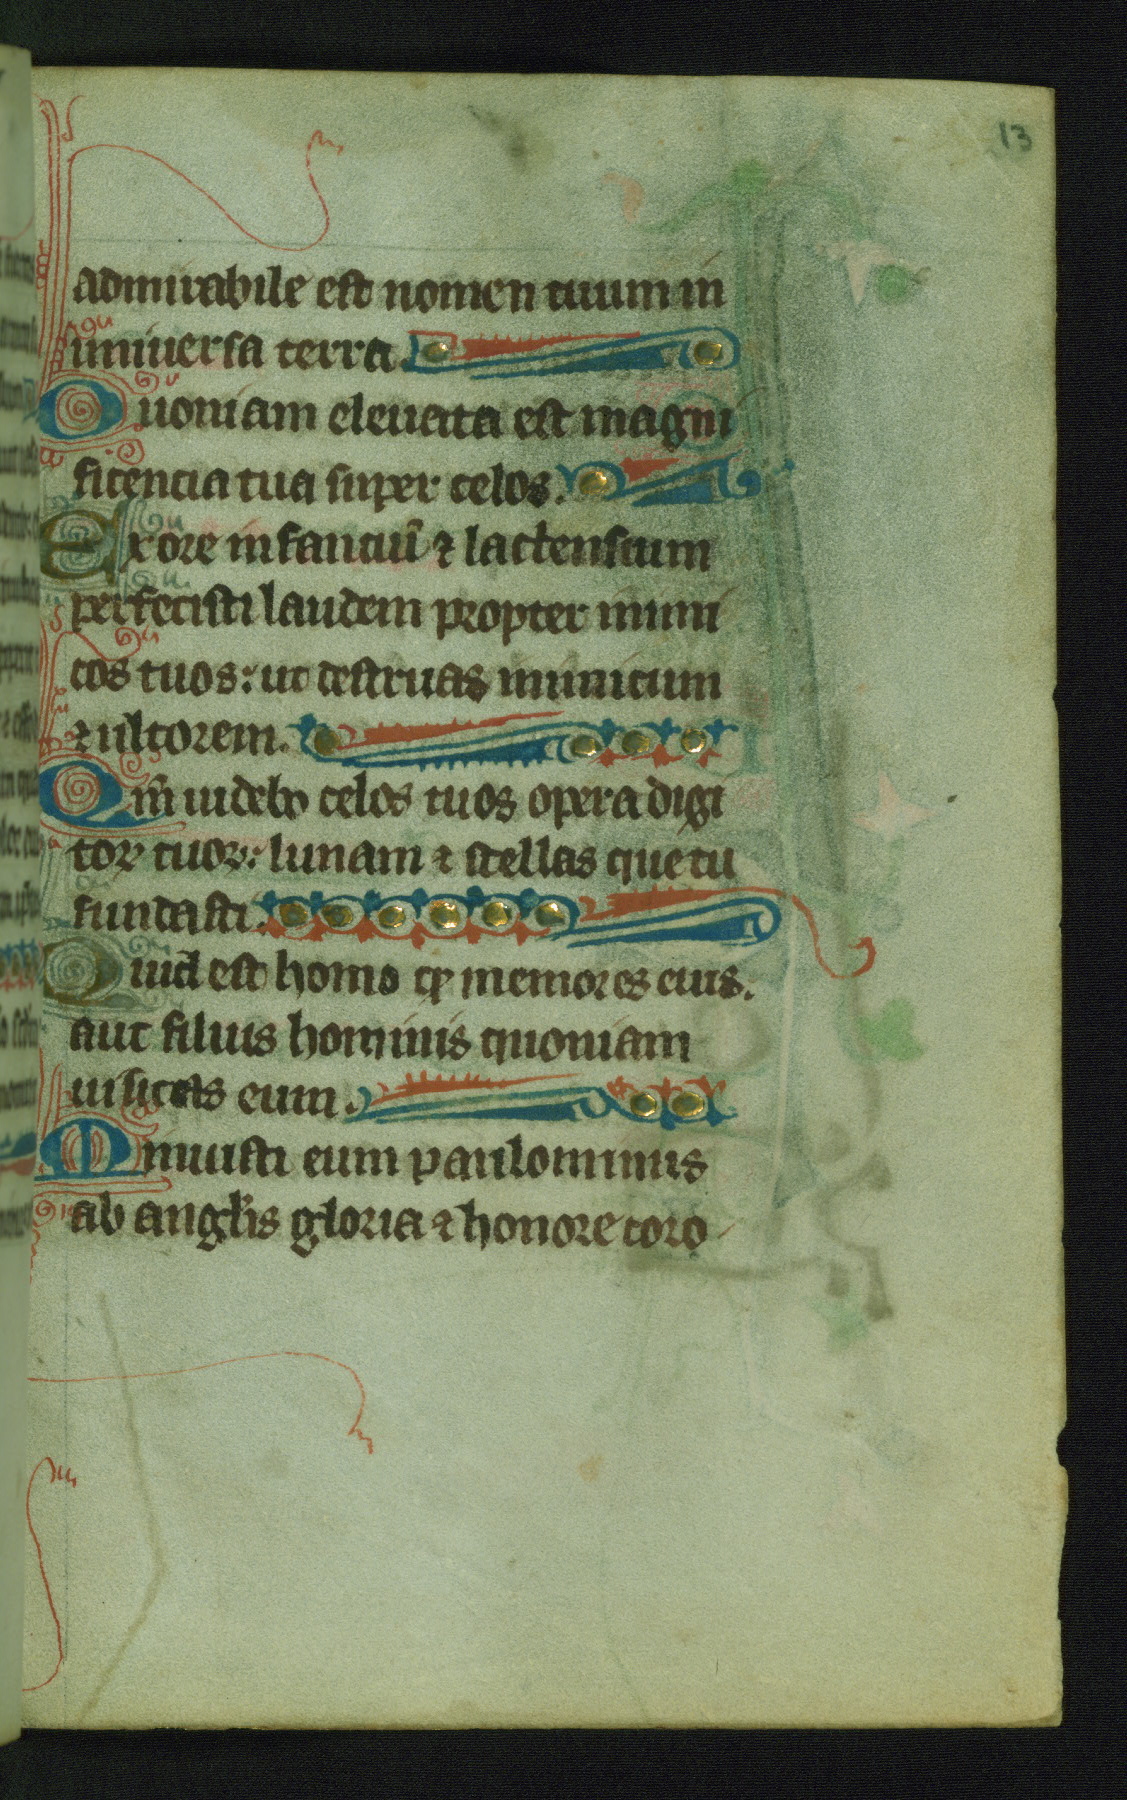 13
admirabile est nomen tuum in
uniuersa terra.
Quoniam eleuata est magni
ficencia tua super celos.
Ex ore infanciū ⁊ lactensium
perfecisti laudem propter inimi
cos tuos: ut destruas inimicum
⁊ ultorem.
Qm̄ uidebo celos tuos opera digi
toꝝ tuoꝝ: lunam ⁊ stellas que tu
fundasti.
Quid est homo ꝙ memores eius.
aut filius hominis quoniam
uisitas eum.
Minuisti eum paulominus
ab angłis gloria ⁊ honore coro